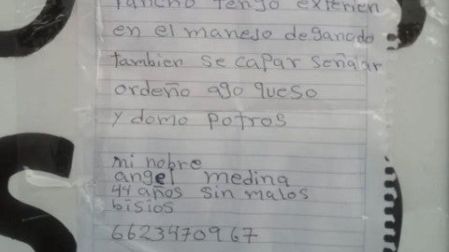 rancho tengo experien
en el manejo de ganado
tambien se capar señalar
ordeño ago queso
y domo potros
mi nobre
angel medina
44 años sin malos
bisios
6623470967